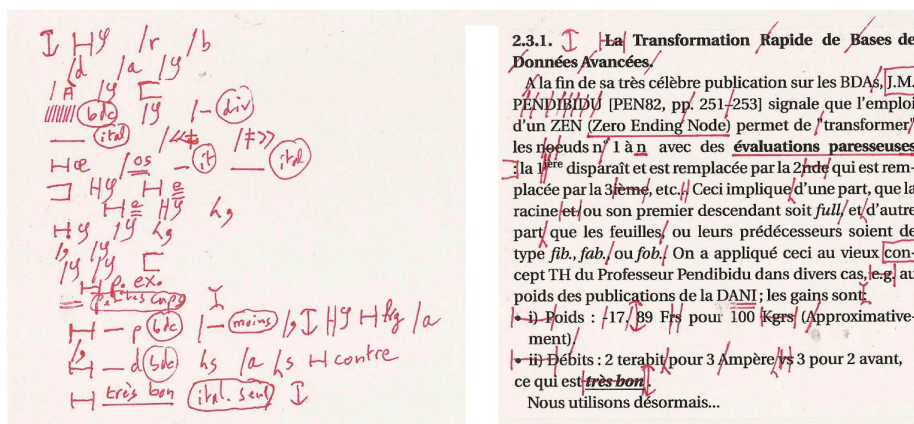 /r /b
/d /a
/A
bdc /- div
ital /«≠ /≠»
œ /os it ital
e
e
p. ex.
petites caps
p bdc /- moins /a
d bdc /a contre
très bon ital. seul
2.3.1. La Transformation Rapide de Bases de
Données Avancées.
A la fin de sa très célèbre publication sur les BDAs, J.M.
PENDIBIDU [PEN82, pp. 251–253] signale que l'emploi
d'un ZEN (Zero Ending Node) permet de "transformer"
les noeuds n° 1 à n avec des évaluations paresseuses
: la 1ière disparaît et est remplacée par la 2nde qui est rem-
placée par la 3ième, etc... Ceci implique d'une part, que la
racine et/ou son premier descendant soit full, et d'autre
part que les feuilles, ou leurs prédécesseurs soient de
type fib., fab., ou fob. On a appliqué ceci au vieux con-
cept TH du Professeur Pendibidu dans divers cas, e.g. au
poids des publications de la DANI ; les gains sont:
• i) Poids : -17. 89 Frs pour 100 Kgrs (Approximative-
ment),
• ii) Débits : 2 terabit pour 3 Ampère vs 3 pour 2 avant,
ce qui est très bon.
Nous utilisons désormais...